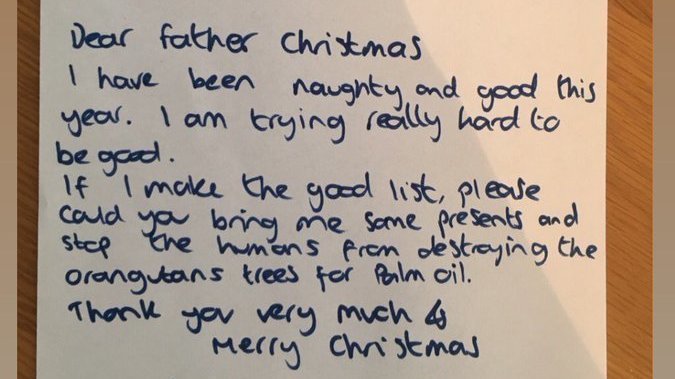 Dear father Christmas
I have been naughty and good this
year. I am trying really hard to
be good.
If I make the good list, please
could you bring me some presents and
stop the humans from destroying the
orangutans trees for Palm oil.
Thank you very much
Merry Christmas